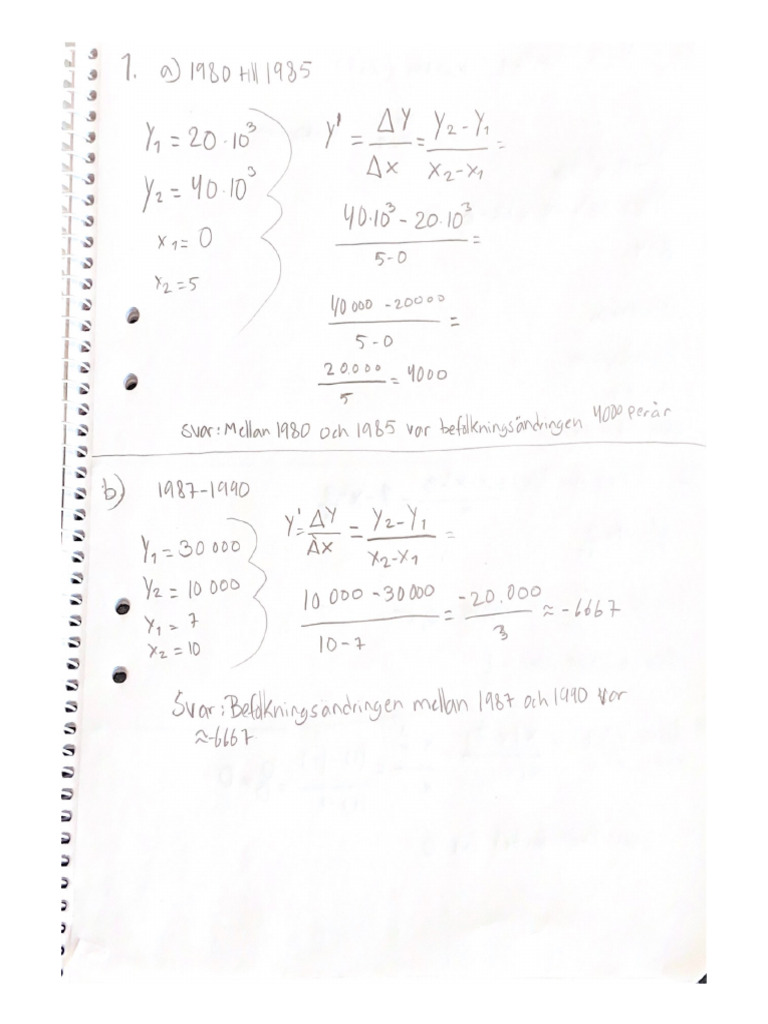 1. a) 1980 till 1985
Y₁ = 20·10³
Y₂ = 40·10³
x₁ = 0
x₂ = 5
Y' = ΔY/Δx = Y₂-Y₁/x₂-x₁ =
40·10³ - 20·10³/5-0 =
40 000 - 20000/5-0 =
20.000/5 = 4000
Svar: Mellan 1980 och 1985 var befolkningsändringen 4000 per år
b) 1987-1990
Y₁ = 30 000
Y₂ = 10 000
Y₁ = 7
x₂ = 10
Y' = ΔY/Δx = Y₂-Y₁/x₂-x₁ =
10 000 - 30 000/10-7 = -20.000/3 ≈ -6667
Svar: Befolkningsändringen mellan 1987 och 1990 var
≈-6667